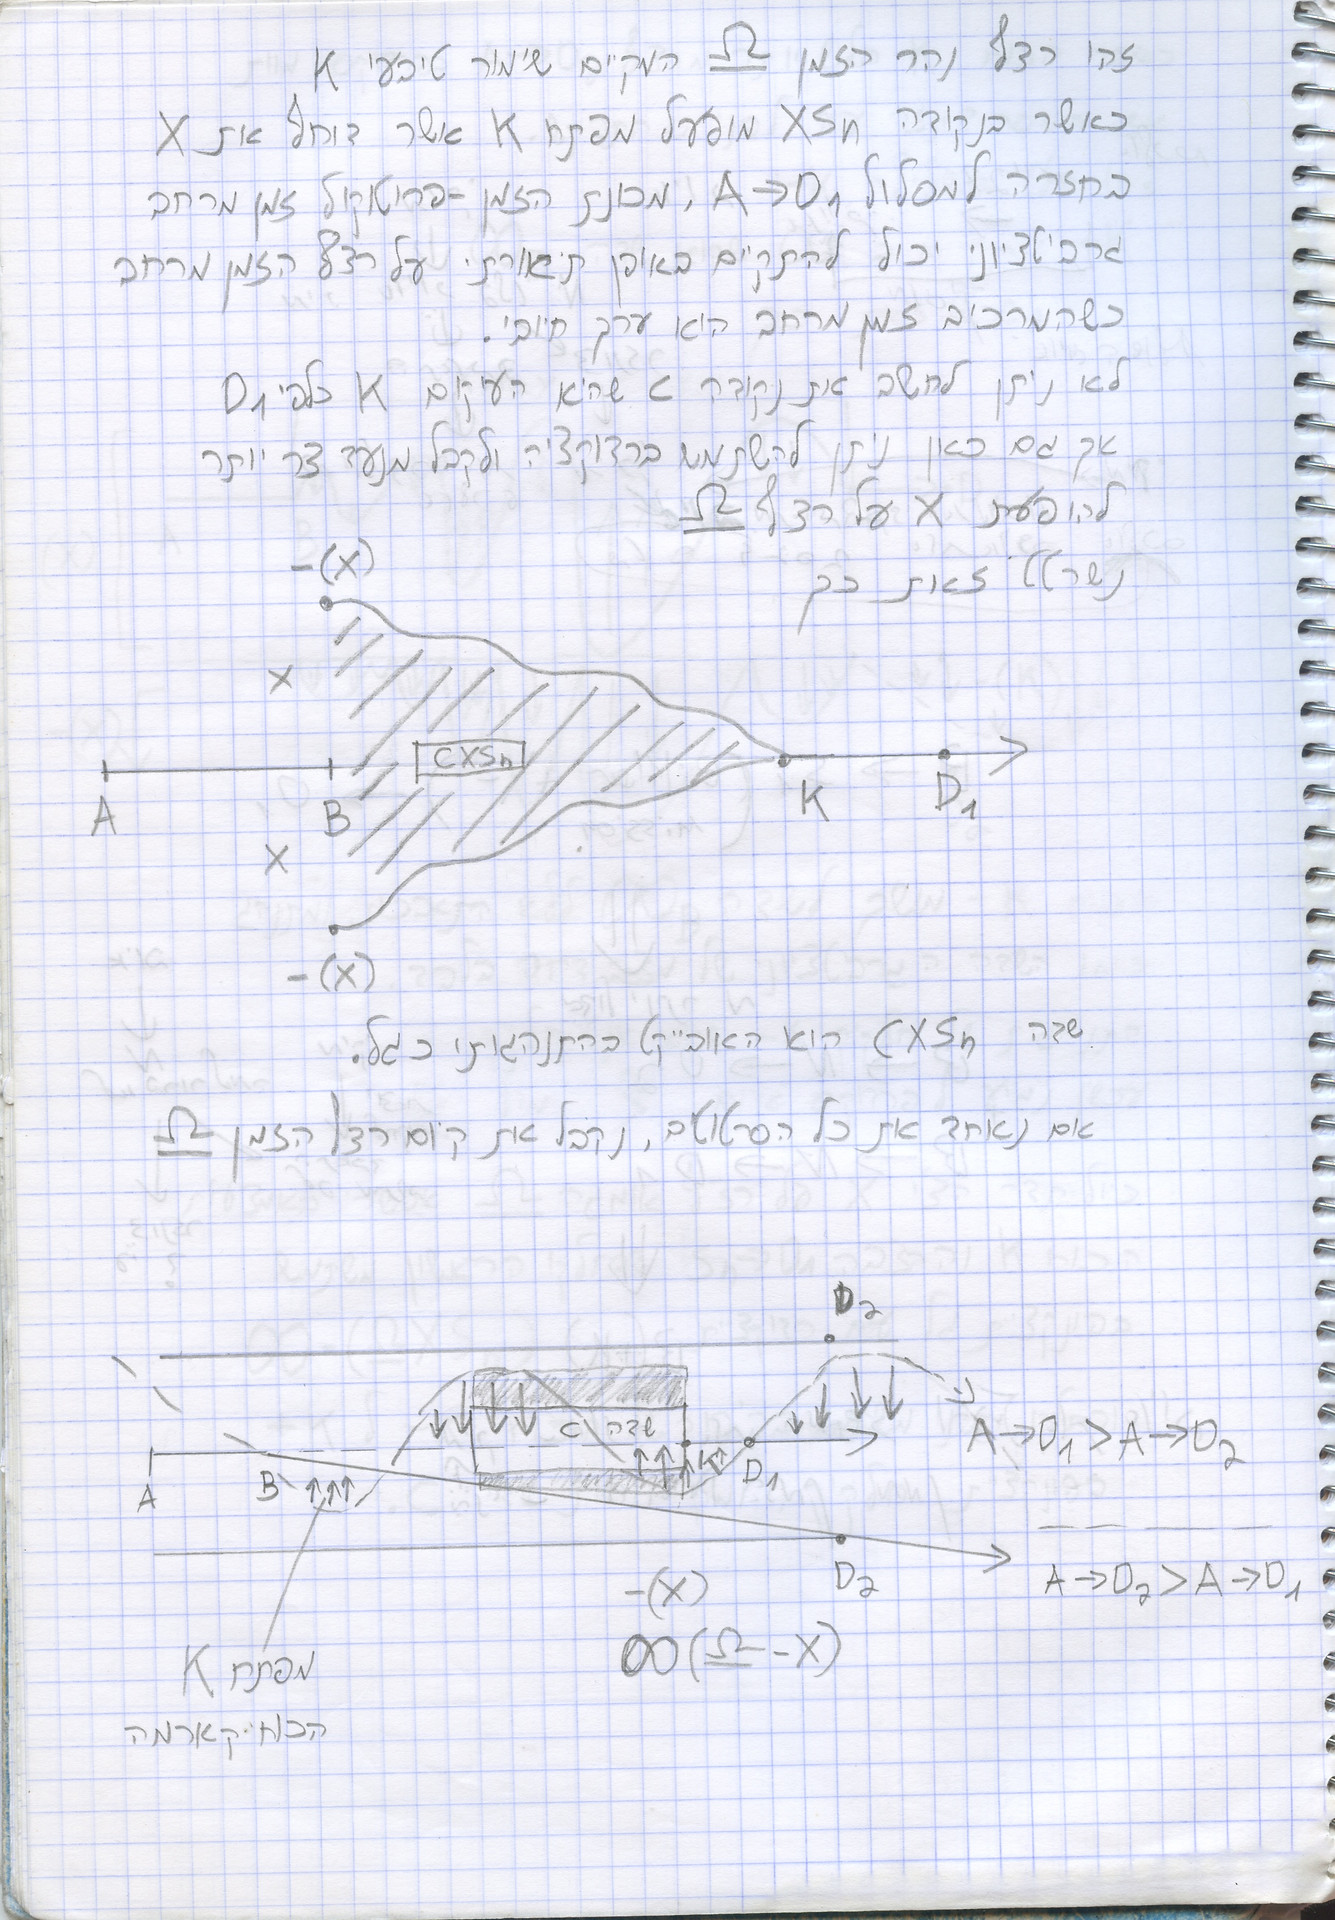 זהו רצף נהר הזמן Ω המקיים שימור טבעי K
כאשר בנקודה XSn מופעל מפתח K אשר דוחף את X
בחזרה למסלול A→D1, מכונת הזמן -פרוטוקול זמן מרחב
גרביטציוני יכול להתקיים באופן תיאורתי על רצף הזמן מרחב
כשהמרכיב זמן מרחב היא ערך חיובי.
לא ניתן לחשב את נקודה C שהיא העיקום K כלפי D1
אך גם כאן ניתן להשתמש ברדוקציה ולקבל מנעד צר יותר
להופעת X על רצף Ω
נשרטט זאת כך
-(X)
X
CXSn
A B K D1
X
-(X)
שדה CXSn הוא האובייקט בהתנהגותו כגל.
אם נאחד את כל הסרטוטים, נקבל את קיום רצף הזמן Ω
D2
שדה C
A→D1>A→D2
A B K D1
D2
A→D2>A→D1
-(X)
∞(Ω-X)
מפתח K
הכוח-קארמה